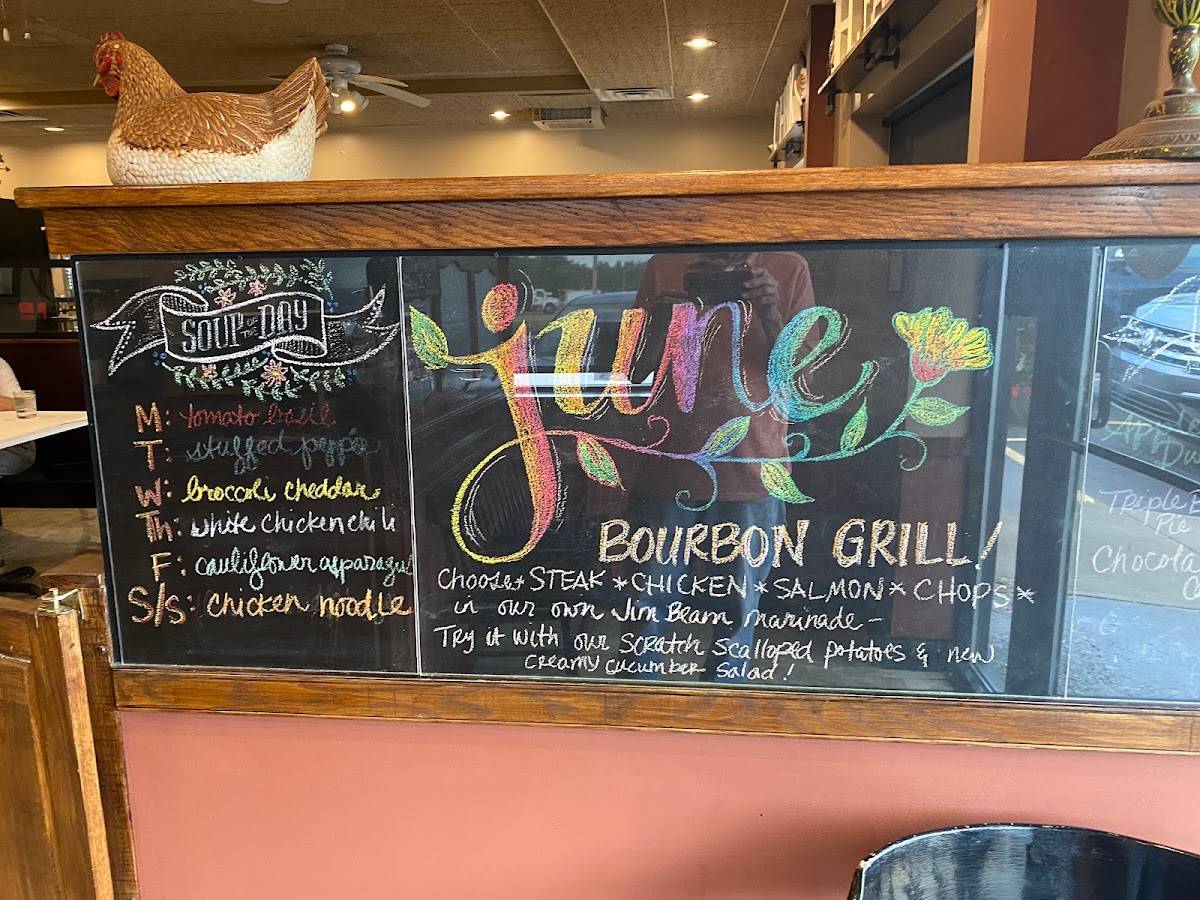 SOUP OF THE DAY
M: tomato basil
T: stuffed pepper
W: broccoli cheddar
Th: white chicken chili
F: cauliflower asparagus
S/S: chicken noodle
june
BOURBON GRILL!
Choose * STEAK * CHICKEN * SALMON * CHOPS *
in our own Jim Beam marinade -
Try it with our scratch scalloped potatoes & new
creamy cucumber salad!
Triple
Pie